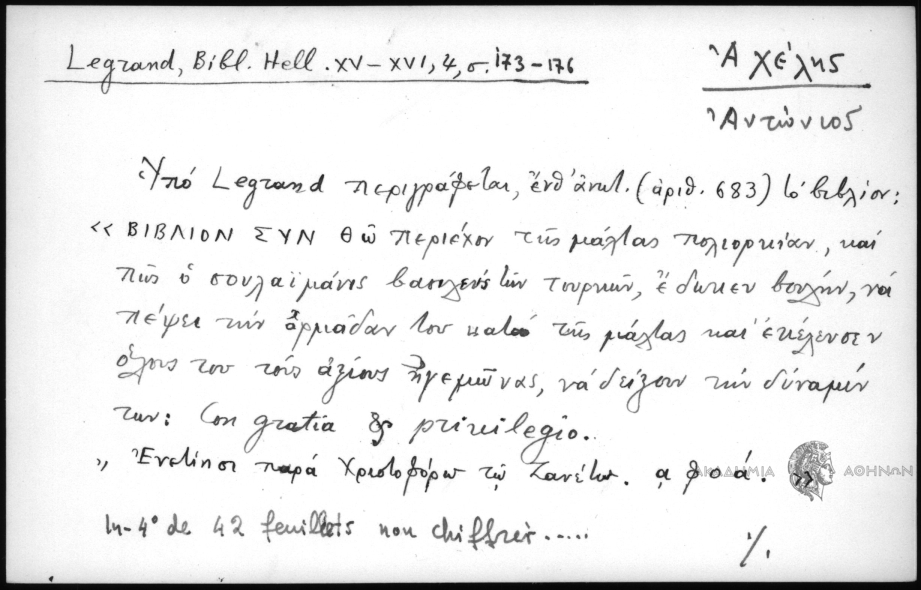 Legrand, Bibl. Hell. XV-XVI, 4, σ. 173-176
Ἀχέλης
Ἀντώνιος
Ὑπό Legrand περιγράφεται, ἔνθ' ἀνωτ. (ἀριθ. 683) τό βιβλίον:
« ΒΙΒΛΙΟΝ ΣΥΝ Θῶ περιέχον τῆς μάλτας πολιορκίαν, καί
πῶς ὁ σουλαϊμάνις βασιλεύς τῶν τουρκῶν, ἔδωκεν βουλήν, νά
πέψει τήν ἁρμάδαν του κατά τῆς μάλτας καί ἐκέλευσεν
ὅλους του τούς ἀξίους ἡγεμῶνας, νά δείξουν τήν δύναμίν
των: Con gratia & privilegio.
„ Ἐνετίησι παρά Χριστοφόρω τῷ Ζανέτω. α φ ο ά. »
ΑΚΑΔΗΜΙΑ ΑΘΗΝΩΝ
In-4° de 42 feuillets non chiffrès.....
%.